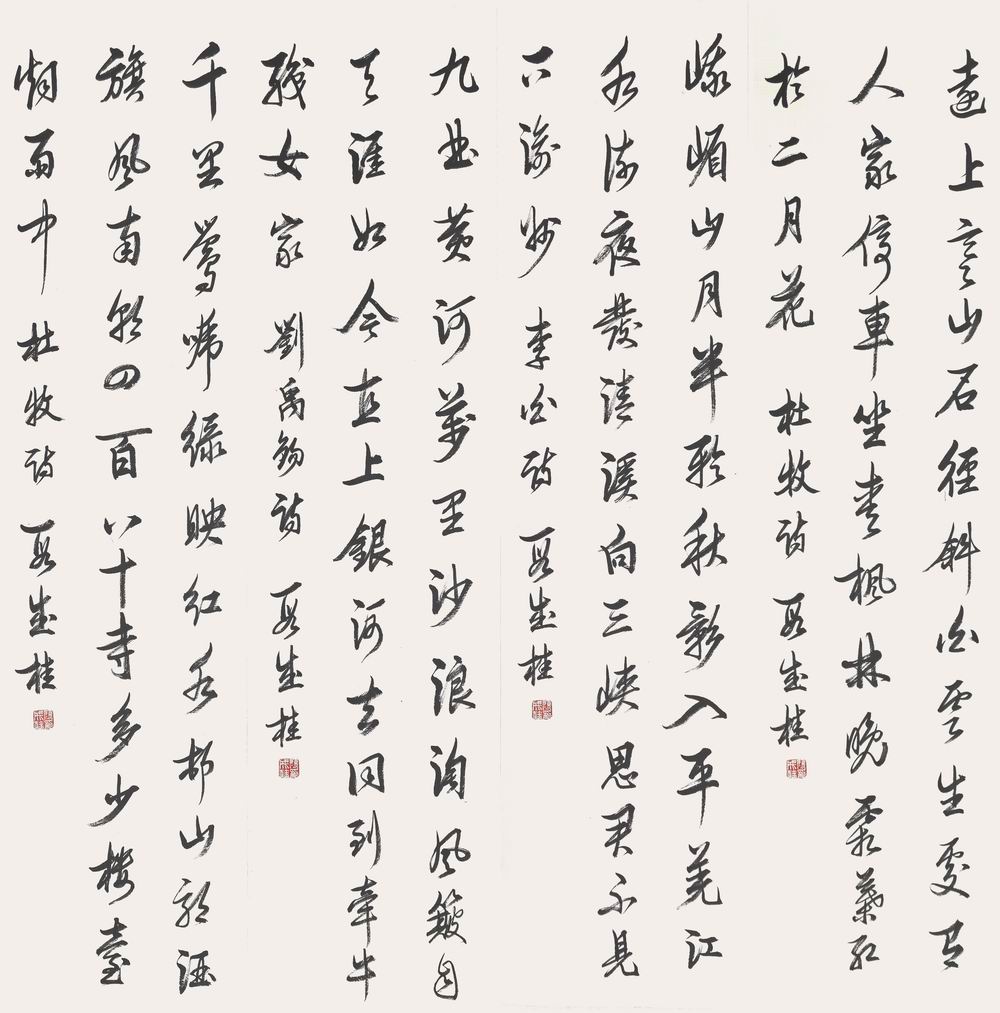 遠上寒山石徑斜白雲生處有
人家停車坐愛楓林晚霜葉紅
於二月花 杜牧詩 段成桂
峨嵋山月半輪秋影入平羌江
水流夜發清溪向三峽思君不見
下渝州 李白詩 段成桂
九曲黃河萬里沙浪淘風簸自
天涯如今直上銀河去同到牽牛
織女家 劉禹錫詩 段成桂
千里鶯啼綠映紅水村山郭酒
旗風南朝四百八十寺多少樓臺
烟雨中 杜牧詩 段成桂